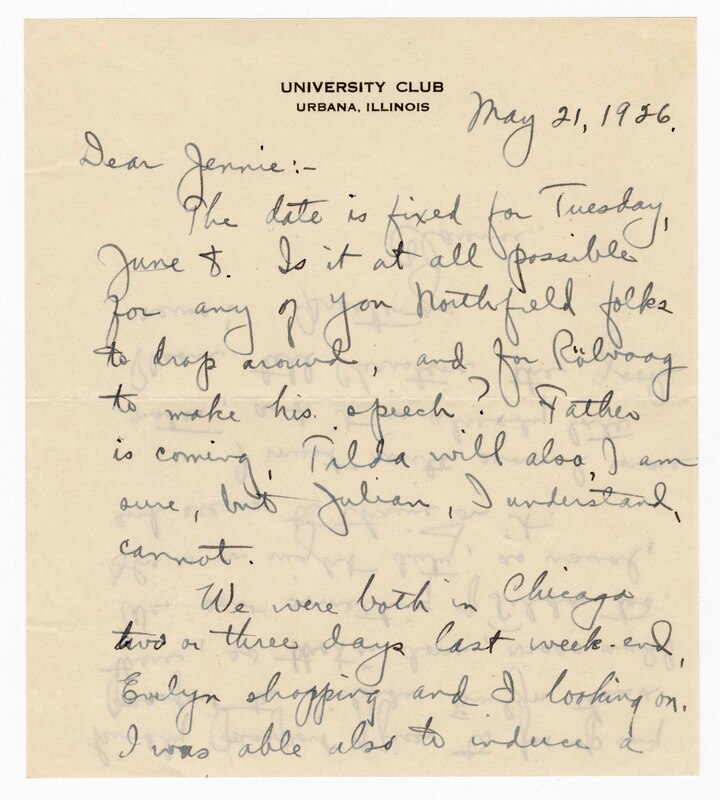 UNIVERSITY CLUB
URBANA, ILLINOIS
May 21, 1926.
Dear Jennie:-
The date is fixed for Tuesday,
June 8. Is it at all possible
for any of you Northfield folks
to drop around, and for Rölvaag
to make his speech? Father
is coming, Tilda will also, I am
sure, but Julian, I understand,
cannot.
We were both in Chicago
two or three days last week-end,
Evelyn shopping and I looking on.
I was able also to induce a